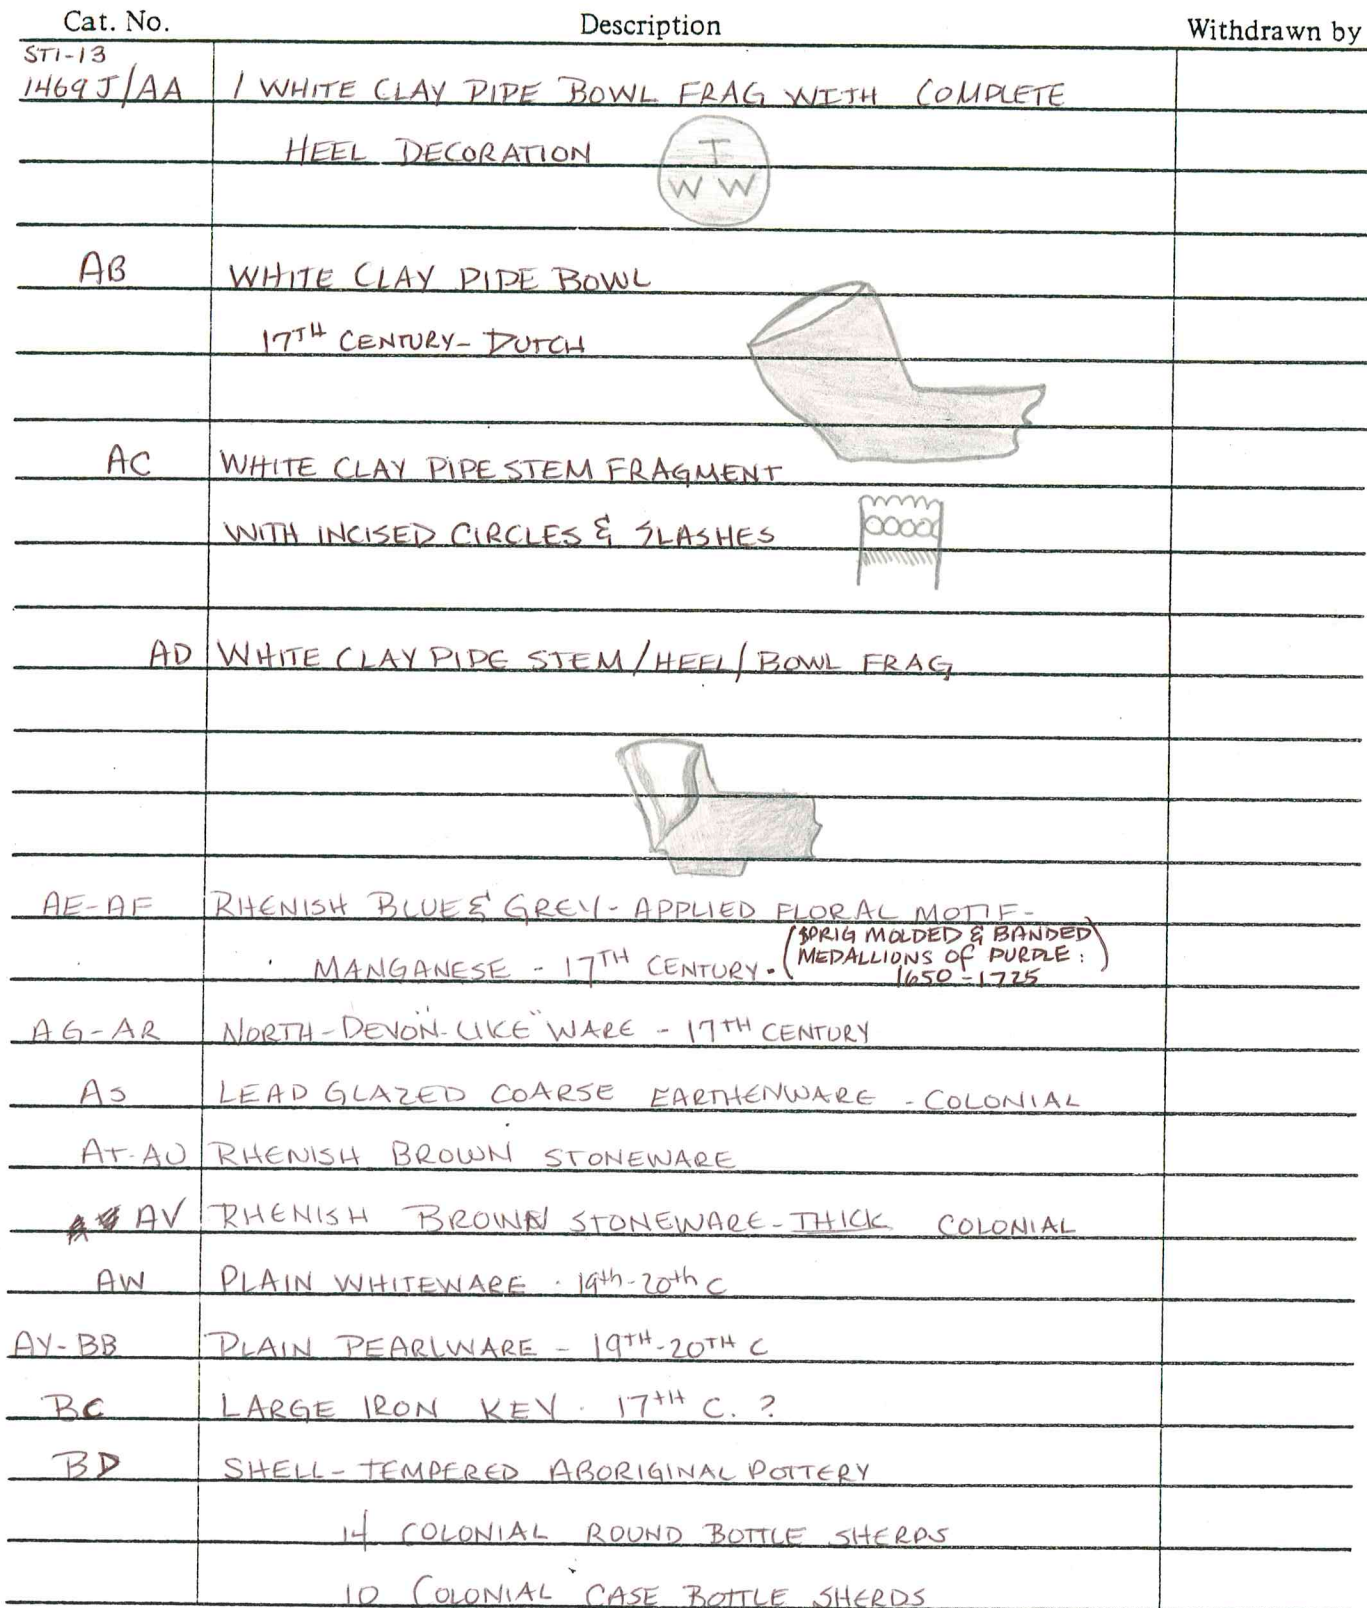 Cat. No. Description Withdrawn by
ST1-13
1469J/AA 1 WHITE CLAY PIPE BOWL FRAG WITH COMPLETE
HEEL DECORATION
T
W W
AB WHITE CLAY PIPE BOWL
17TH CENTURY- DUTCH
AC WHITE CLAY PIPE STEM FRAGMENT
WITH INCISED CIRCLES & SLASHES
AD WHITE CLAY PIPE STEM/HEEL/BOWL FRAG
AE-AF RHENISH BLUE & GREY- APPLIED FLORAL MOTIF-
MANGANESE - 17TH CENTURY. (SPRIG MOLDED & BANDED
MEDALLIONS OF PURPLE:
1650-1725)
AG-AR NORTH-DEVON-LIKE" WARE - 17TH CENTURY
AS LEAD GLAZED COARSE EARTHENWARE - COLONIAL
AT-AU RHENISH BROWN STONEWARE
AV RHENISH BROWN STONEWARE-THICK COLONIAL
AW PLAIN WHITEWARE - 19th-20th C
AY-BB PLAIN PEARLWARE - 19TH-20TH C
BC LARGE IRON KEY. 17TH C. ?
BD SHELL-TEMPERED ABORIGINAL POTTERY
14 COLONIAL ROUND BOTTLE SHERDS
10 COLONIAL CASE BOTTLE SHERDS